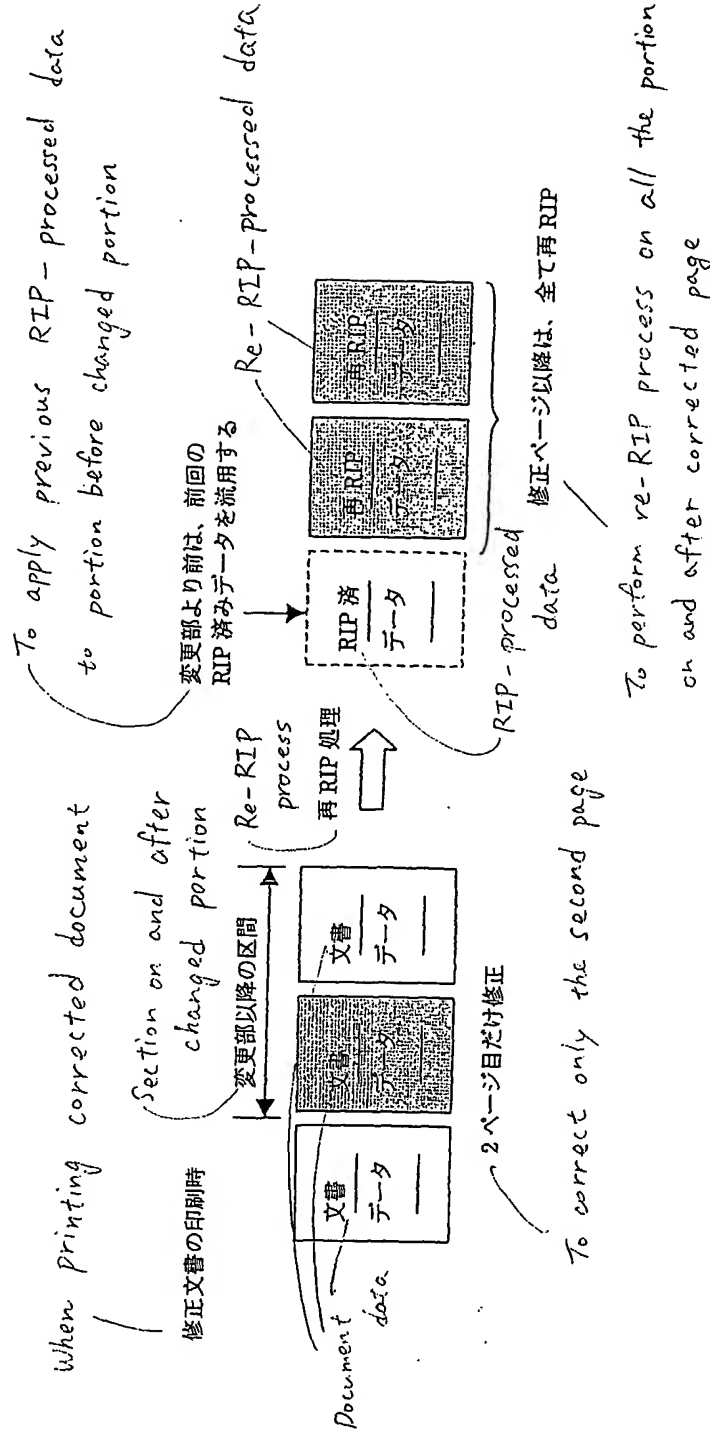 When printing corrected document
修正文書の印刷時
Section on and after
changed portion
変更部以降の区間
文書
データ
文書
データ
文書
データ
Document
data
2ページ目だけ修正
To correct only the second page
Re-RIP
process
再 RIP 処理
To apply previous RIP-processed data
to portion before changed portion
変更より前は、前回の
RIP 済みデータを流用する
Re-RIP-processed data
RIP 済
データ
再 RIP
データ
再 RIP
データ
RIP-processed
data
修正ページ以降は、全て再 RIP
To perform re-RIP process on all the portion
on and after corrected page